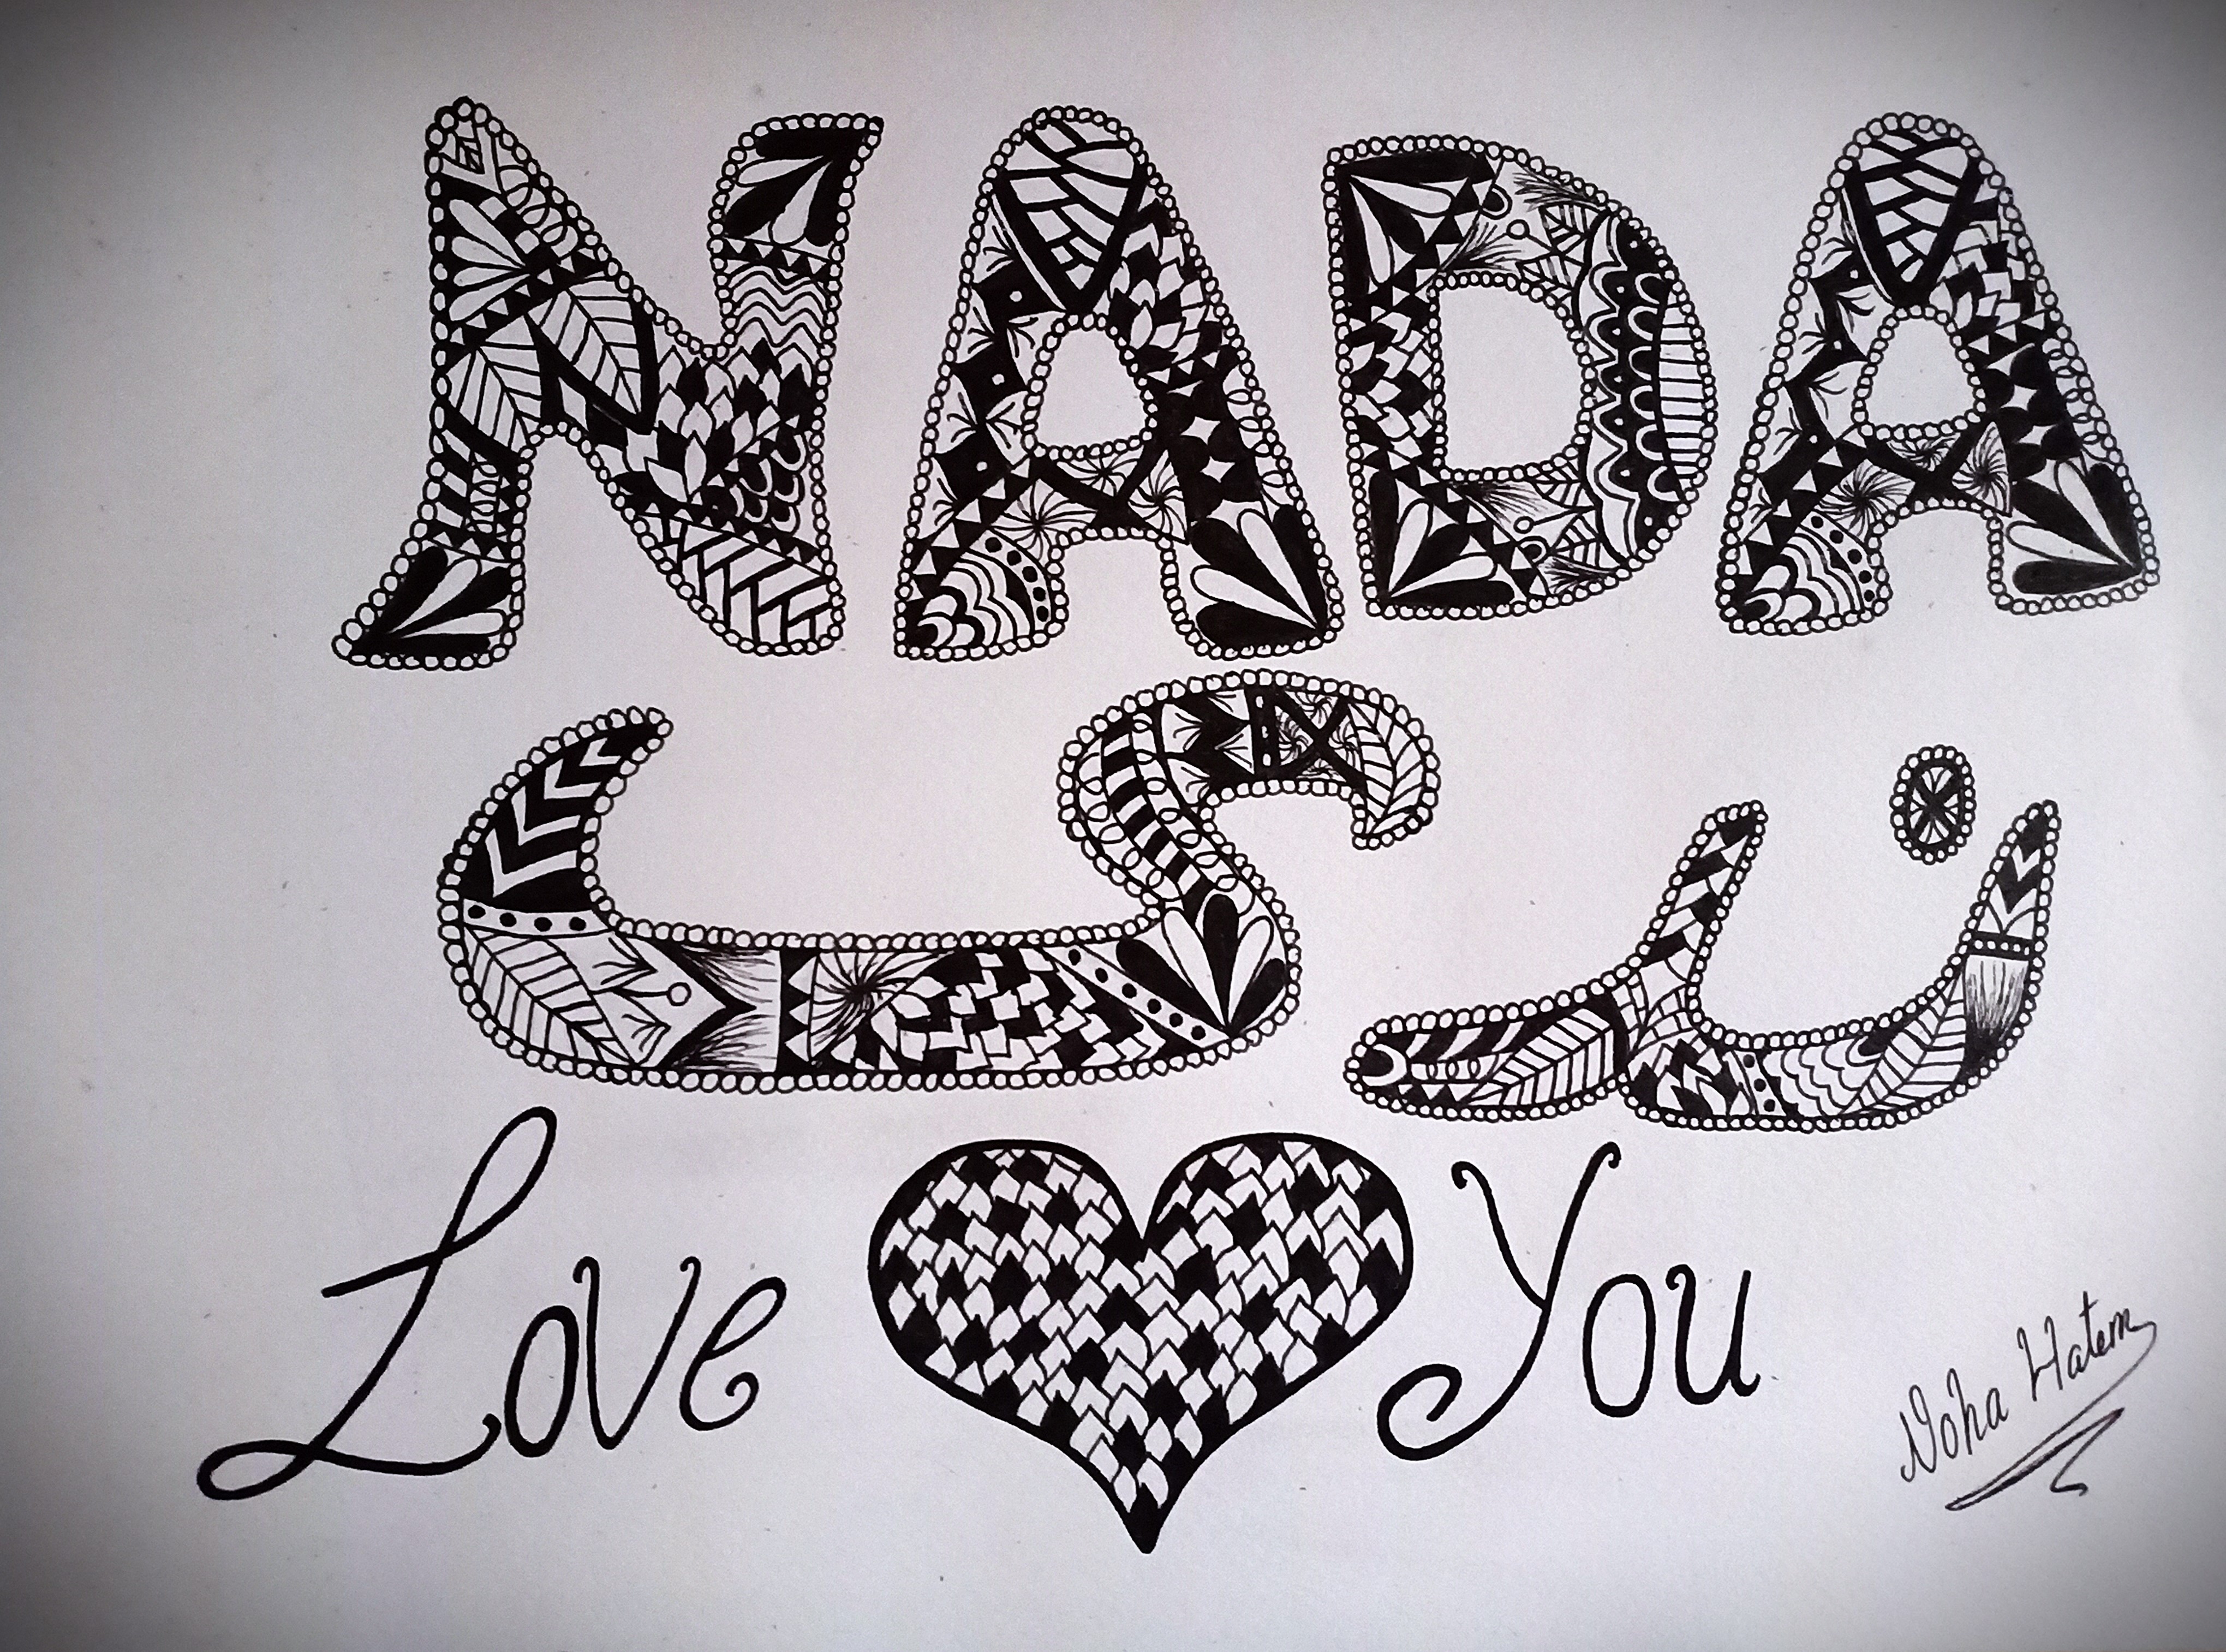 NADA
ندى
Love You
Noha Hatem